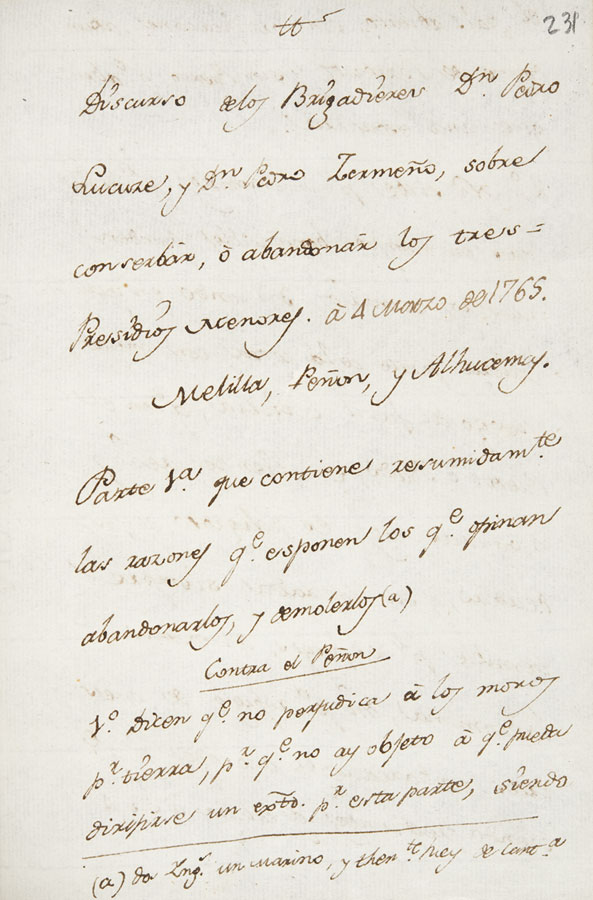 231
Discurso de los Brigadieres Dn. Pedro
Lucuze, y Dn. Pedro Zermeño, sobre
conserbár, ò abandonár los tres=
Presidios Menores. à 4 Marzo de 1765.
Melilla, Peñon, y Alhucemas.
Parte 1a. que contiene resumidamte.
las razones qe. esponen los qe. opinan
abandonarlos, y demolerlos (a)
Contra el Peñon
1o. Dicen qe. no perjudica à los moros
pr. tierra, pr. qe. no ay objeto à qe. pueda
dirijirse un extd. pr. esta parte, siendo
(a) un Marino, y de